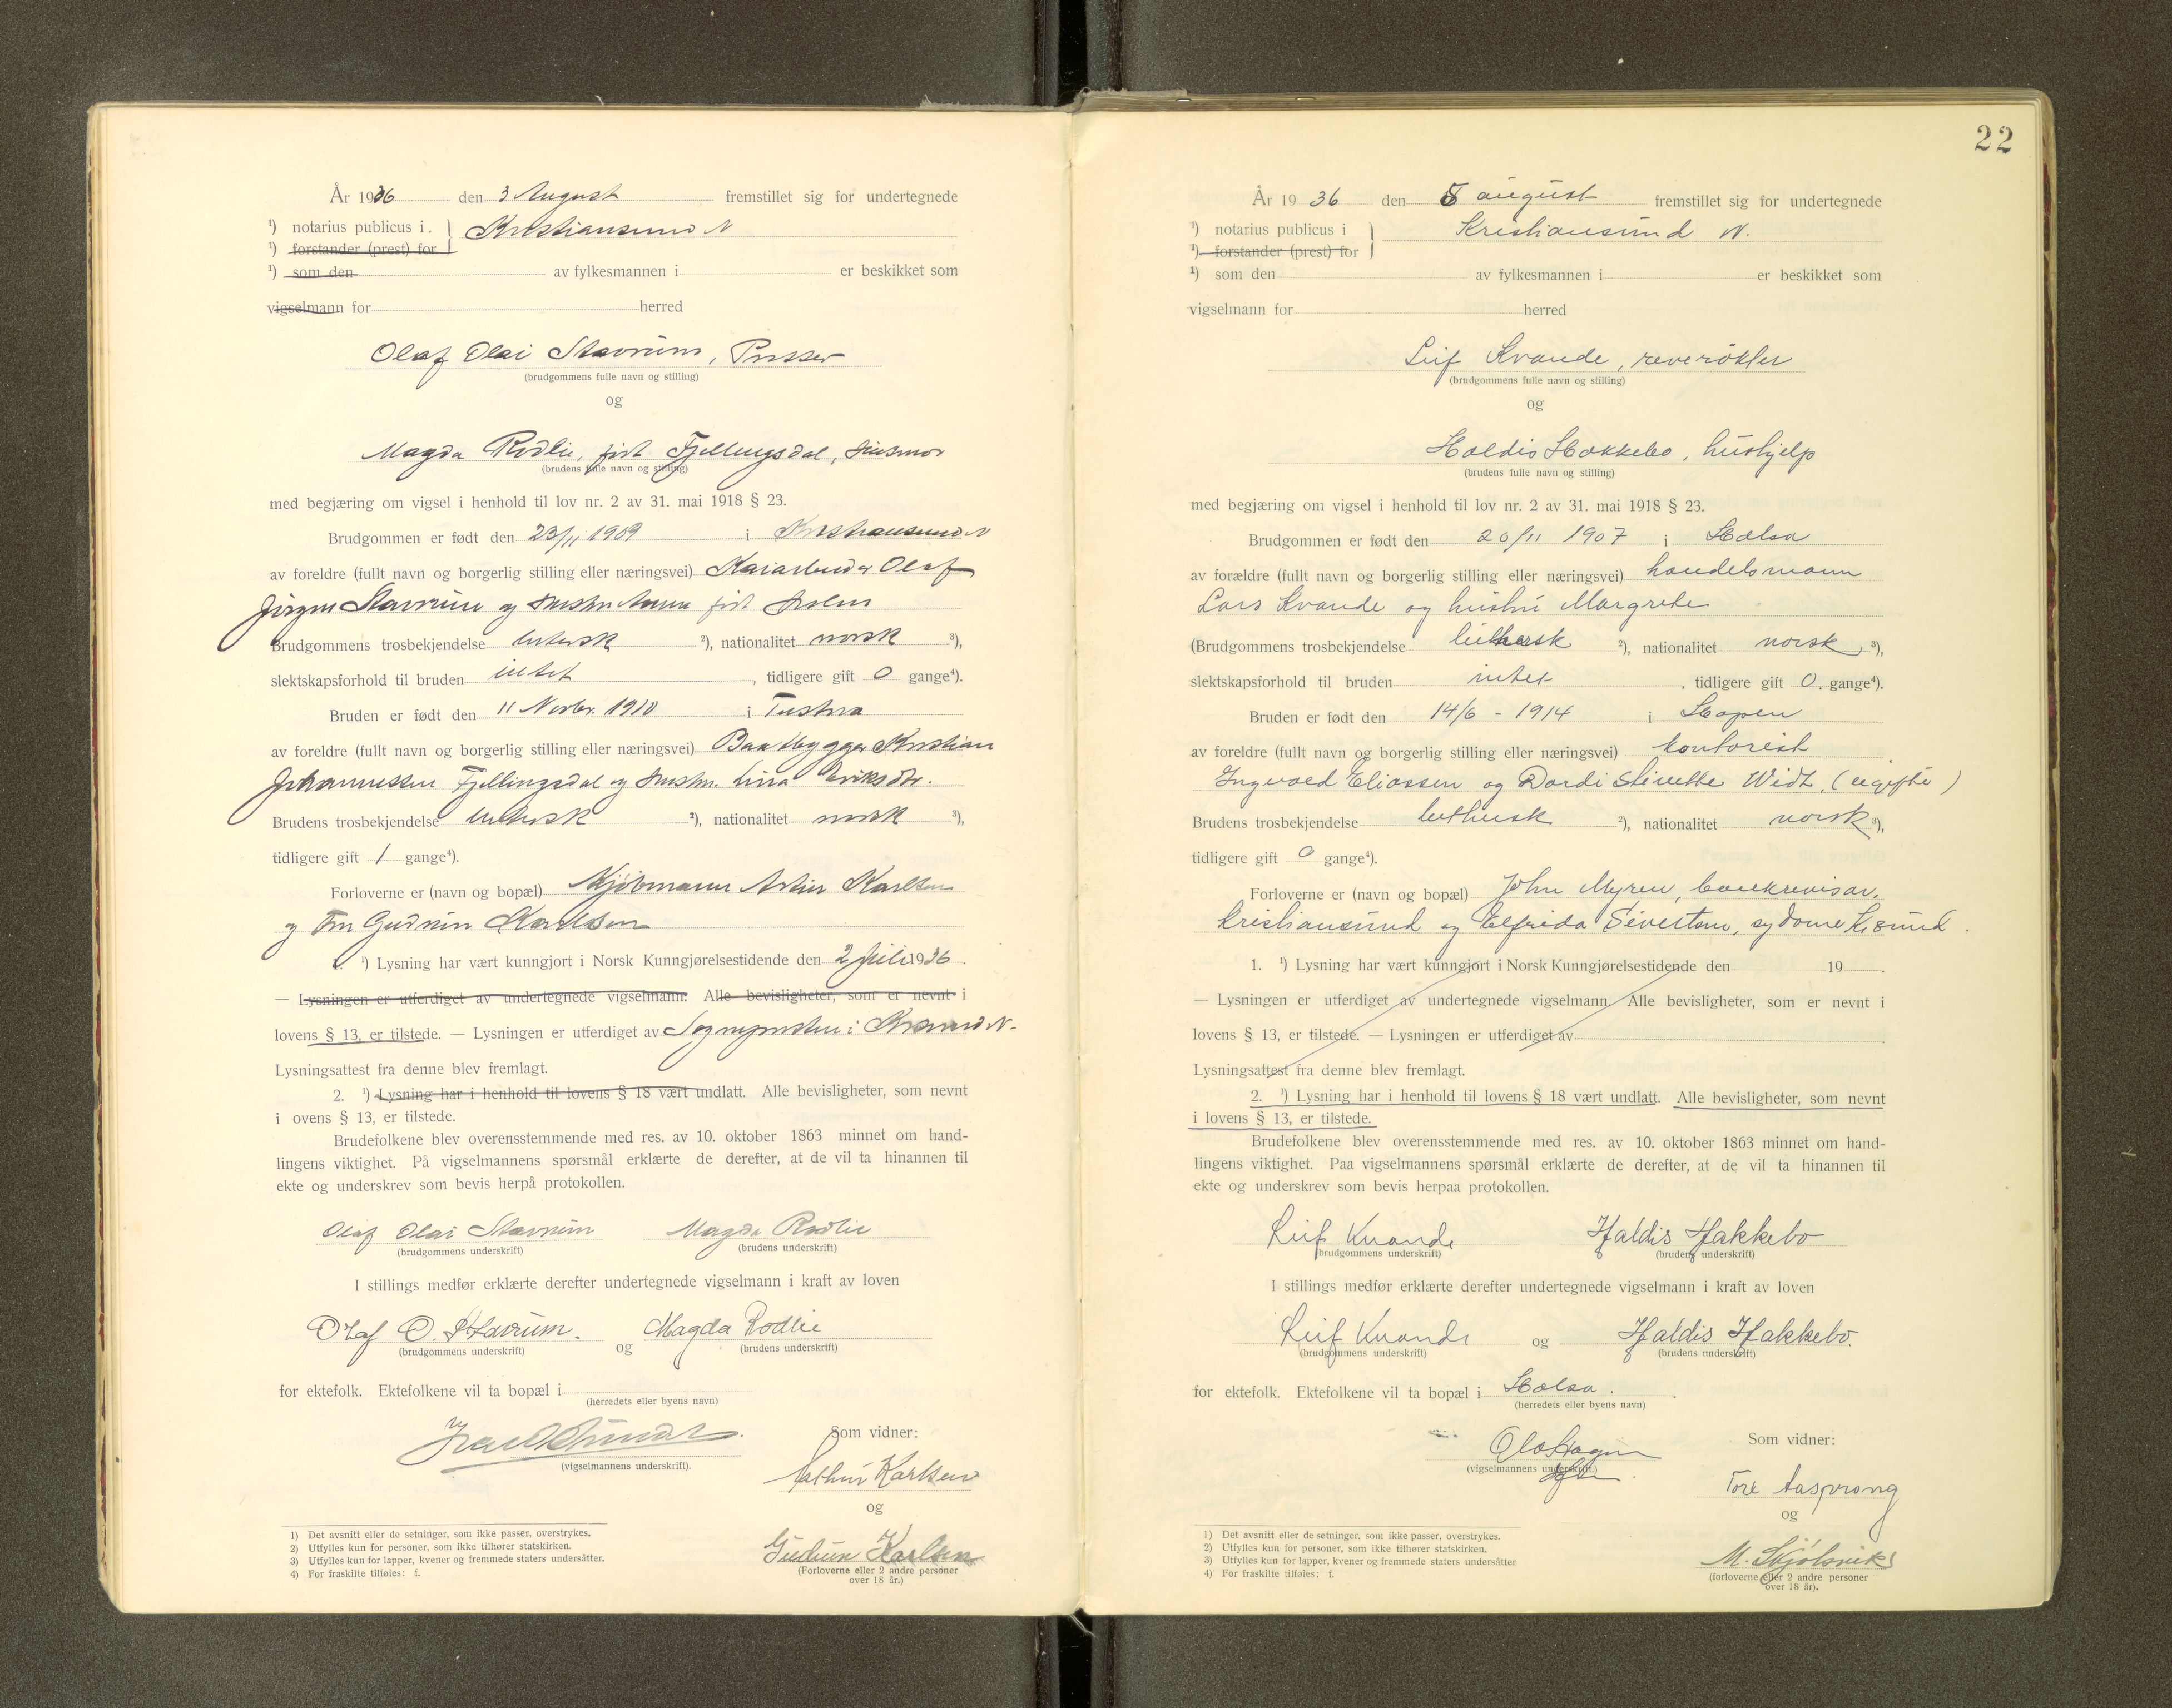 År 1936 den 3 August fremstillet sig for undertegnede
¹) notarius publicus i. } Kristiansund N
¹) forstander (prest) for
¹) som den av fylkesmannen i er beskikket som
vigselmann for herred
Olaf Olai Stavrum, Pusser
(brudgommens fulle navn og stilling)
og
Magda Rodlie, født Fjellungsdal, husmor
(brudens fulle navn og stilling)
med begjæring om vigsel i henhold til lov nr. 2 av 31. mai 1918 § 23.
Brudgommen er født den 23/11 1909 i Kristiansund N
av foreldre (fullt navn og borgerlig stilling eller næringsvei) Olaf
Jørgen Stavrum og hustru født Holm
Brudgommens trosbekjendelse luthersk ²), nationalitet norsk ³),
slektskapsforhold til bruden intet , tidligere gift 0 gange⁴).
Bruden er født den 11 Novbr. 1910 i Tustna
av foreldre (fullt navn og borgerlig stilling eller næringsvei) Baatbygger Kristian
Johannessen Fjellingsdal og hustru Eriksdtr.
Brudens trosbekjendelse luthersk ²), nationalitet norsk ³),
tidligere gift 1 gange⁴).
Forloverne er (navn og bopæl) Kjøbmann Artur Karlsen
og Fru Gudrun Karlsen
¹) Lysning har vært kunngjort i Norsk Kunngjørelsestidende den 2 juli 1936.
— Lysningen er utferdiget av undertegnede vigselmann. Alle bevisligheter, som er nevnt i
lovens § 13, er tilstede. — Lysningen er utferdiget av Sognepresten i Krsund N-
Lysningsattest fra denne blev fremlagt.
2. ¹) Lysning har i henhold til lovens § 18 vært undlatt. Alle bevisligheter, som nevnt
i ovens § 13, er tilstede.
Brudefolkene blev overensstemmende med res. av 10. oktober 1863 minnet om hand-
lingens viktighet. På vigselmannens spørsmål erklærte de derefter, at de vil ta hinannen til
ekte og underskrev som bevis herpå protokollen.
Olaf Olai Stavrum Magda Rodlie
(brudgommens underskrift) (brudens underskrift)
I stillings medfør erklærte derefter undertegnede vigselmann i kraft av loven
Olaf O. Stavrum. og Magda Rodlie
(brudgommens underskrift) (brudens underskrift)
for ektefolk. Ektefolkene vil ta bopæl i
(herredets eller byens navn)
(vigselmannens underskrift).
Som vidner:
Arthur Karlsen
og
Gudrun Karlsen
(Forloverne eller 2 andre personer
over 18 år.)
1) Det avsnitt eller de setninger, som ikke passer, overstrykes.
2) Utfylles kun for personer, som ikke tilhører statskirken.
3) Utfylles kun for lapper, kvener og fremmede staters undersåtter.
4) For fraskilte tilføies: f.
22
År 1936 den 8 august fremstillet sig for undertegnede
¹) notarius publicus i } Kristiansund N.
¹) forstander (prest) for
¹) som den av fylkesmannen i er beskikket som
vigselmann for herred
Leif Kvande, reverøkter
(brudgommens fulle navn og stilling)
og
Haldis Hakkebo, hushjelp
(brudens fulle navn og stilling)
med begjæring om vigsel i henhold til lov nr. 2 av 31. mai 1918 § 23.
Brudgommen er født den 20/11 1907 i Halsa
av forældre (fullt navn og borgerlig stilling eller næringsvei) handelsmann
Lars Kvande og hustru Margrete
(Brudgommens trosbekjendelse luthersk ²), nationalitet norsk, ³),
slektskapsforhold til bruden intet , tidligere gift 0. gange⁴).
Bruden er født den 14/6 - 1914 i Hopen
av foreldre (fullt navn og borgerlig stilling eller næringsvei) kontorist
Ingvald Eliassen og Dordi Widt, (ugifte)
Brudens trosbekjendelse luthersk ²), nationalitet norsk ³),
tidligere gift 0 gange⁴).
Forloverne er (navn og bopæl) John Myren, bankrevisor,
Kristiansund og Elfrida Sivertsen, sydame Kr.sund.
1. ¹) Lysning har vært kunngjort i Norsk Kunngjørelsestidende den 19 .
— Lysningen er utferdiget av undertegnede vigselmann. Alle bevisligheter, som er nevnt i
lovens § 13, er tilstede. — Lysningen er utferdiget av .
Lysningsattest fra denne blev fremlagt.
2. ¹) Lysning har i henhold til lovens § 18 vært undlatt. Alle bevisligheter, som nevnt
i lovens § 13, er tilstede.
Brudefolkene blev overensstemmende med res. av 10. oktober 1863 minnet om hand-
lingens viktighet. Paa vigselmannens spørsmål erklærte de derefter, at de vil ta hinannen til
ekte og underskrev som bevis herpaa protokollen.
Leif Kvande Haldis Hakkebo
(brudgommens underskrift) (brudens underskrift)
I stillings medfør erklærte derefter undertegnede vigselmann i kraft av loven
Leif Kvande og Haldis Hakkebo.
(brudgommens underskrift) (brudens underskrift)
for ektefolk. Ektefolkene vil ta bopæl i Halsa.
(herredets eller byens navn)
Ola Hagen
(vigselmannens underskrift.)
Som vidner:
Tore Aasprong
og
M. Skjølsvik
(forloverne eller 2 andre personer
over 18 år).
1) Det avsnitt eller de setninger, som ikke passer, overstrykes.
2) Utfylles kun for personer, som ikke tilhører statskirken.
3) Utfylles kun for lapper, kvener og fremmede staters undersåtter
4) For fraskilte tilføies: f.